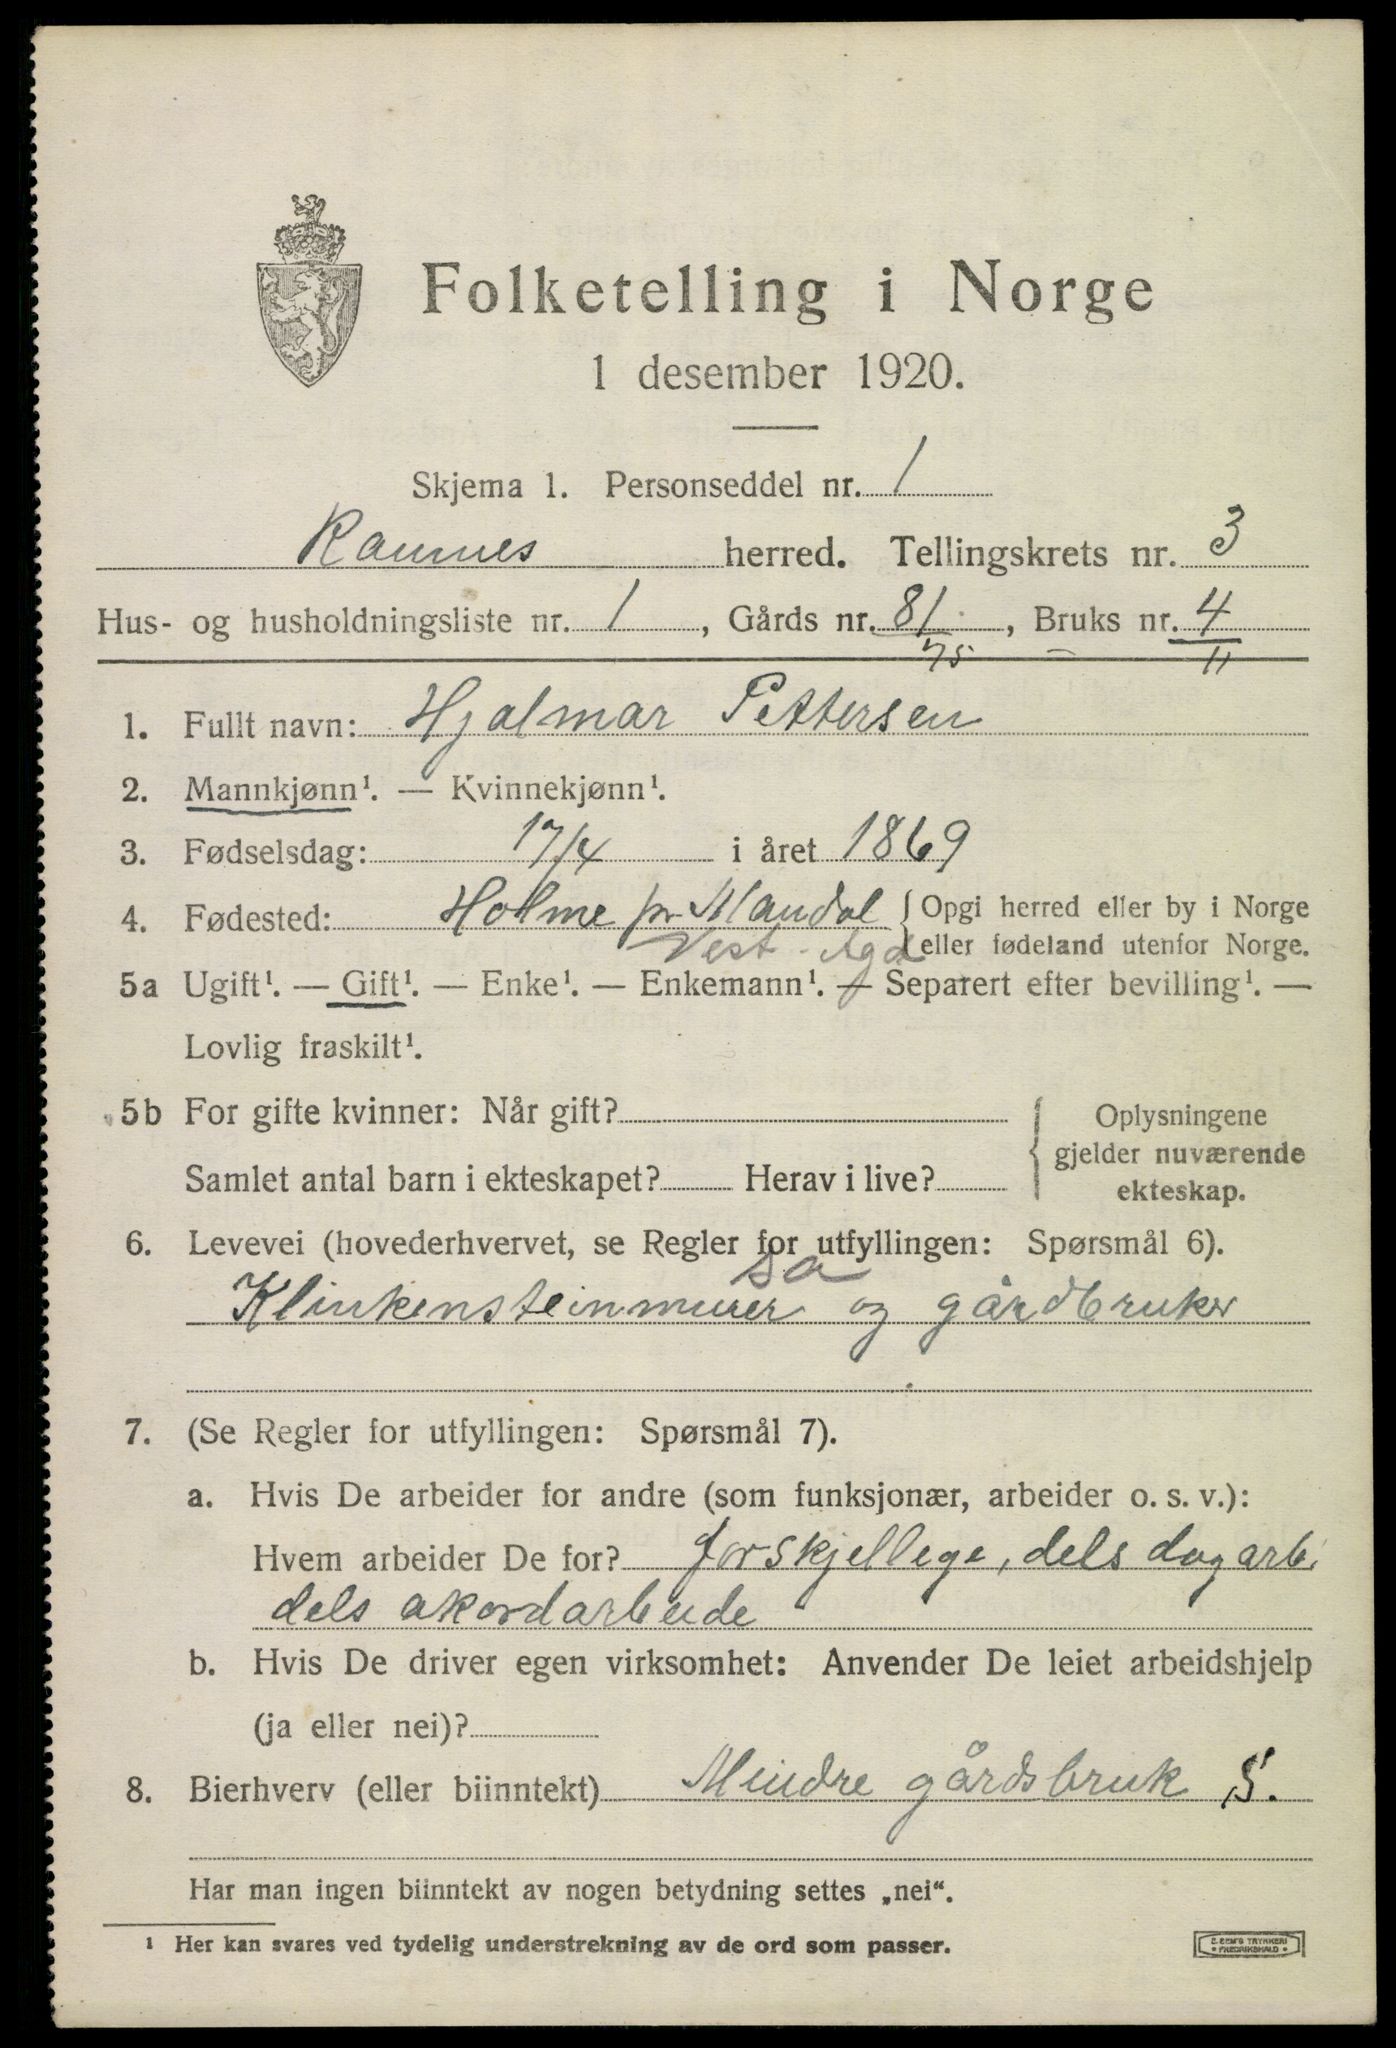 Folketelling i Norge
1 desember 1920.
Skjema 1. Personseddel nr. 1
herred. Tellingskrets nr. 3
Hus- og husholdningsliste nr. 1, Gårds nr. 81, Bruks nr. 4
75 11
1. Fullt navn: Hjalmar Pettersen
2. Mannkjønn¹. — Kvinnekjønn¹.
3. Fødselsdag: 17/4 i året 1869
4. Fødested: Holme pr Mandal {Opgi herred eller by i Norge
Vest-Agd eller fødeland utenfor Norge.
5a Ugift¹. — Gift¹. — Enke¹. — Enkemann¹. — Separert efter bevilling¹. —
Lovlig fraskilt¹.
5b For gifte kvinner: Når gift? { Oplysningene
gjelder nuværende
Samlet antal barn i ekteskapet? Herav i live?
ekteskap.
6. Levevei (hovederhvervet, se Regler for utfyllingen: Spørsmål 6).
sa
Klinkensteinmurer og gårdbruker
7. (Se Regler for utfyllingen: Spørsmål 7).
a. Hvis De arbeider for andre (som funksjonær, arbeider o. s. v.):
Hvem arbeider De for? forskjellege, dels dagarb.
dels akordarbeide
b. Hvis De driver egen virksomhet: Anvender De leiet arbeidshjelp
(ja eller nei)?
8. Bierhverv (eller biinntekt) Mindre gårdsbruk S.
Har man ingen biinntekt av nogen betydning settes „nei“.
¹ Her kan svares ved tydelig understrekning av de ord som passer.
TRYKKERI
FREDRIKSHALD